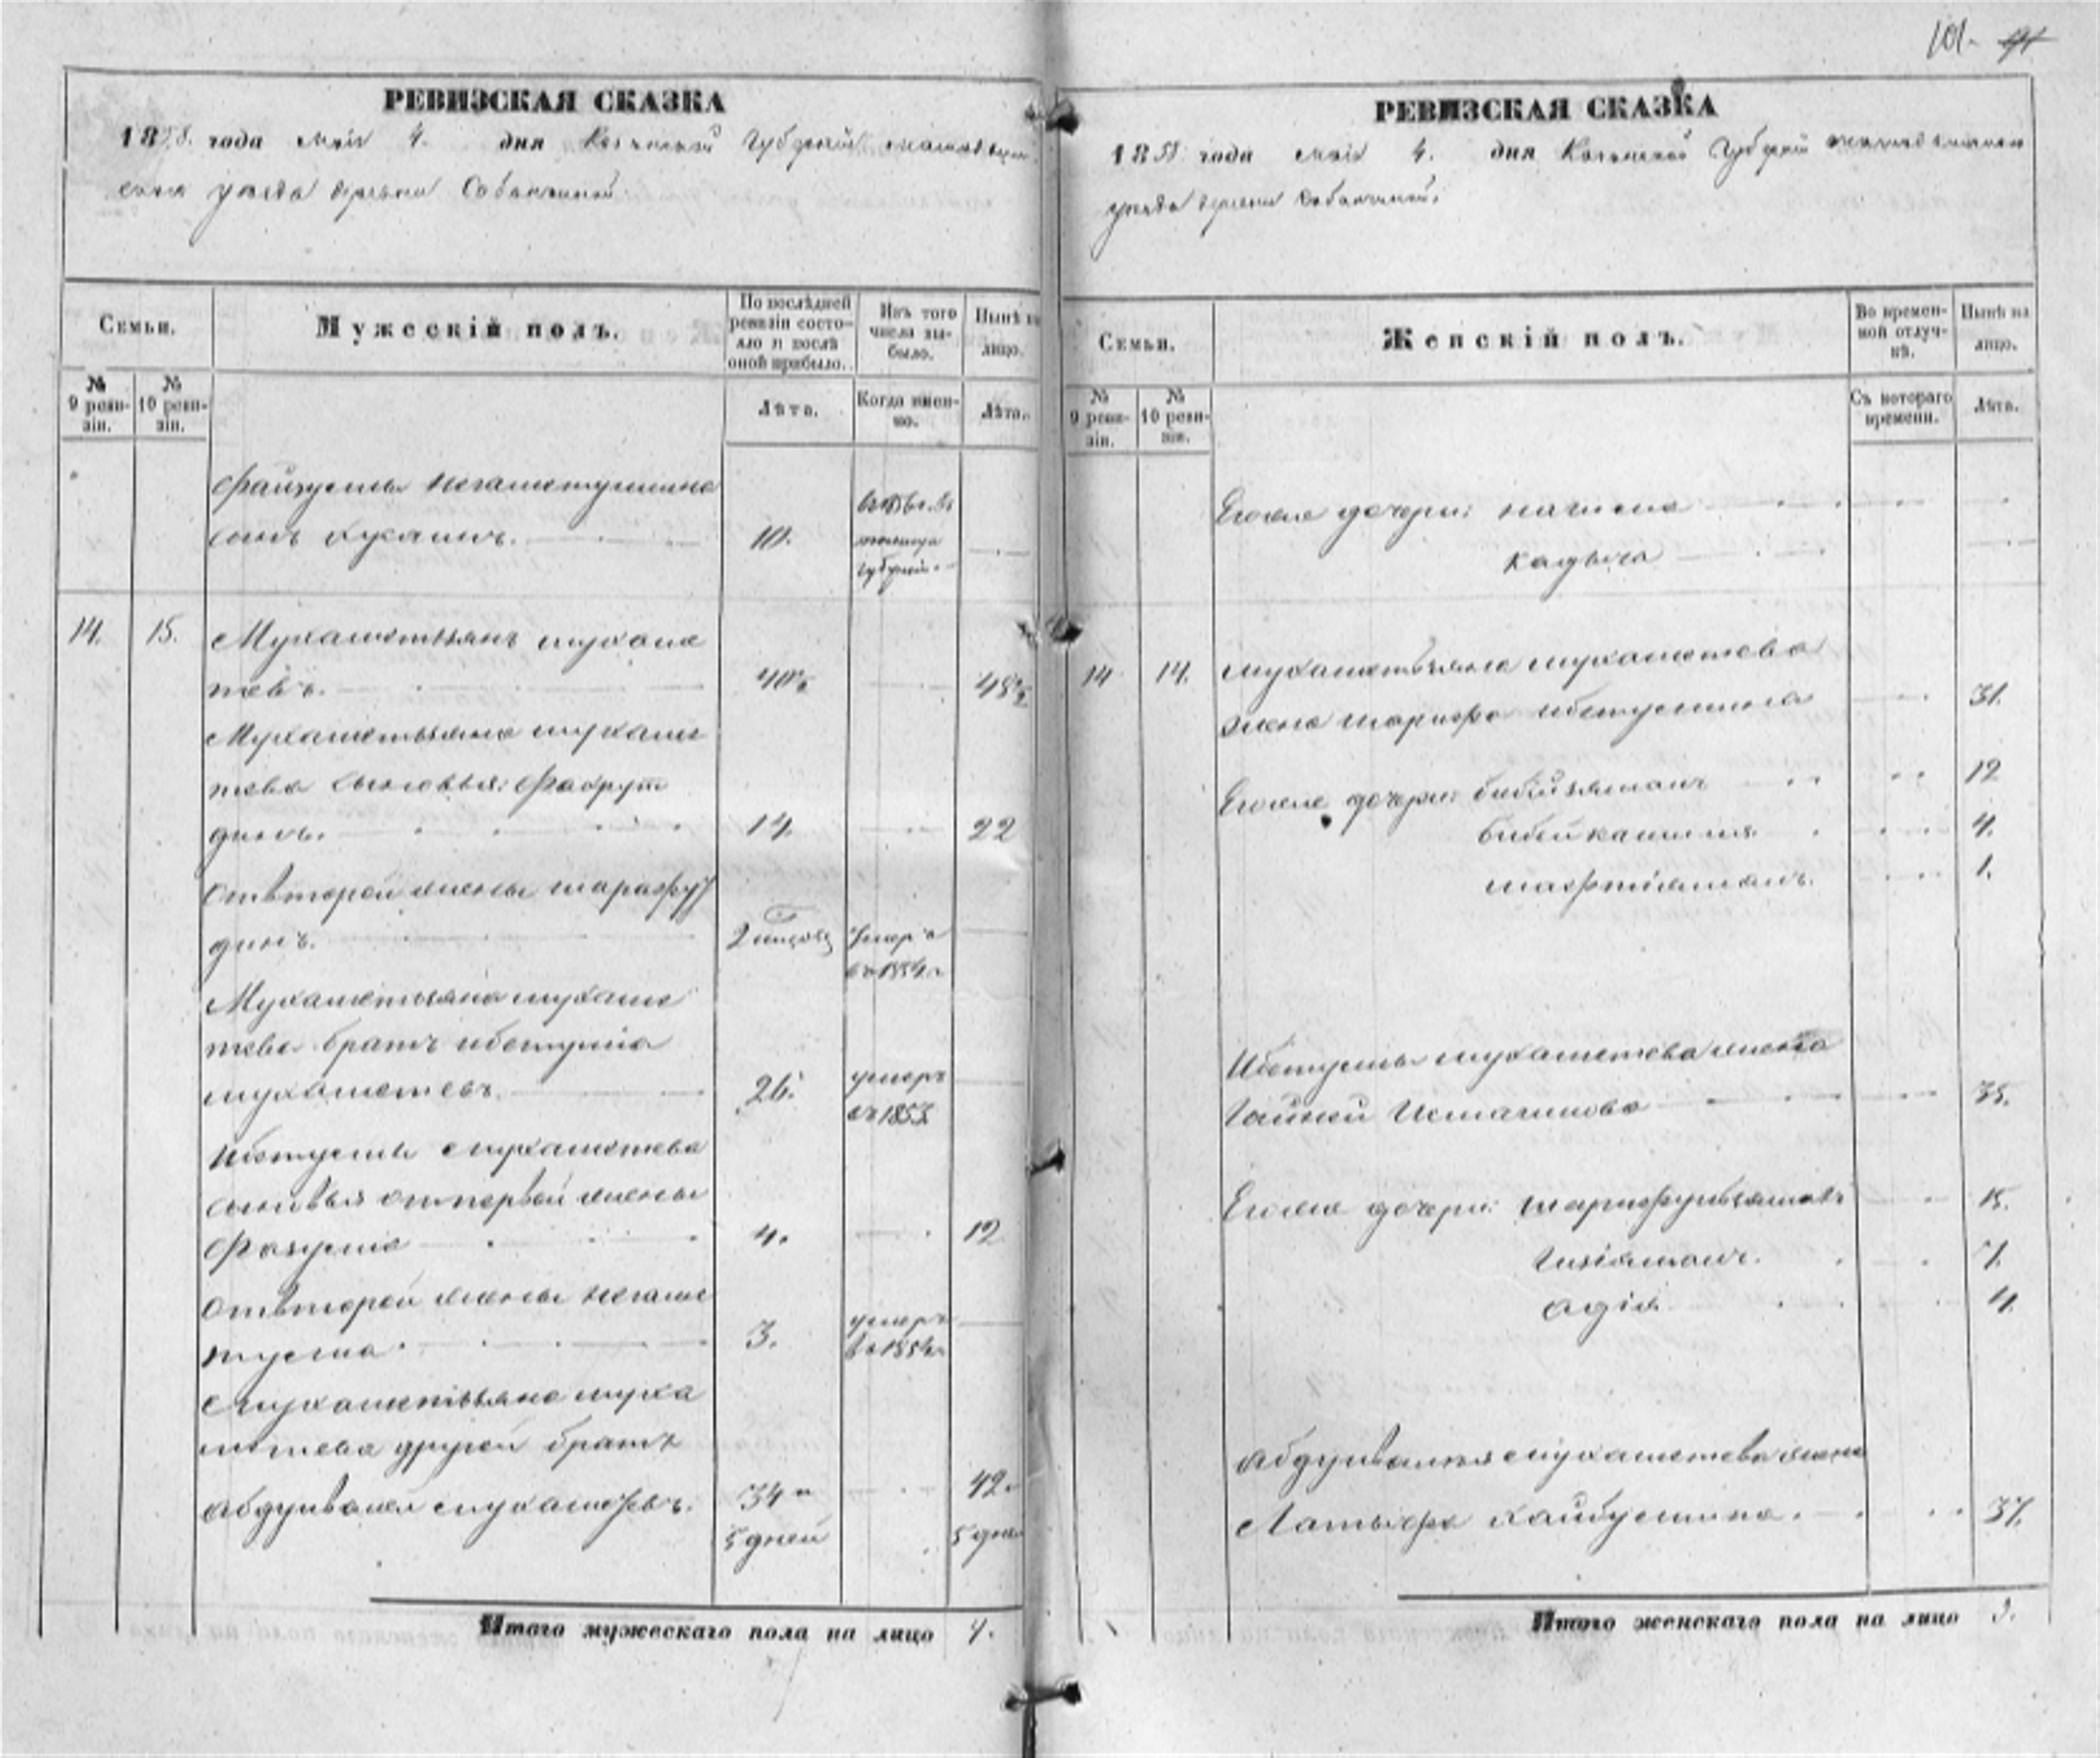 101. 91
РЕВИЗСКАЯ СКАЗКА
1858. года мая 4. дня Казанской Губерніи мамадыш
ской уезда деревни Собакиной
Семьи.
Мужескій полъ.
По послѣдней ревизіи состояло и послѣ оной прибыло.
Изъ того числа выбыло.
Нынѣ на лицо.
№ 9 ревизіи.
№ 10 ревизіи.
Лѣта.
Когда именно.
Лѣта.
Файзуллы Негаметуллина
сынъ
10.
губерній
14. 15. Мухаметзянъ мухаме
тевъ. 40½ 48½
Мухаметзяна мухаме
тева сыновья: Фахрут
динъ. 14. 22
Отвторой жены шарафут
динъ. 2 месяц умеръ
въ 1854.
Мухаметзяна мухаме
тева братъ ибетулла
мухаметевъ 26. умеръ
въ 1853
Ибетуллы мухаметева
сыновья отпервой жены
Фазулла 4. 12
Отвторой жены негаме
тулла 3. умеръ
въ 1854
Мухаметзяна муха
метева другой братъ
абдулвалей мухаметевъ. 34 42.
5 дней 5 дне
Итого мужескаго пола на лицо 4.
РЕВИЗСКАЯ СКАЗКА
1858 года мая 4. дня Казанской Губерніи мамадышской
уезда деревни Собакиной.
Семьи.
Женскій полъ.
Во временной отлучкѣ.
Нынѣ на лицо.
№ 9 ревизіи.
№ 10 ревизіи.
Съ котораго времени.
Лѣта.
Егоже дочери: нагима
кадыча
14 14. мухаметзяна мухаметева
жена шарифа ибетуллина 31.
Егоже дочери: бибизямалъ 12
бибикамиля 4.
1.
Ибетуллы мухаметева жена
Гайней Исмагилова 35.
Егоже дочери: шарифулзямалъ 15.
7.
адія 4.
абдулвалея мухаметева жена
Латыфа хайбуллина. 37.
Итого женскаго пола на лицо 9.